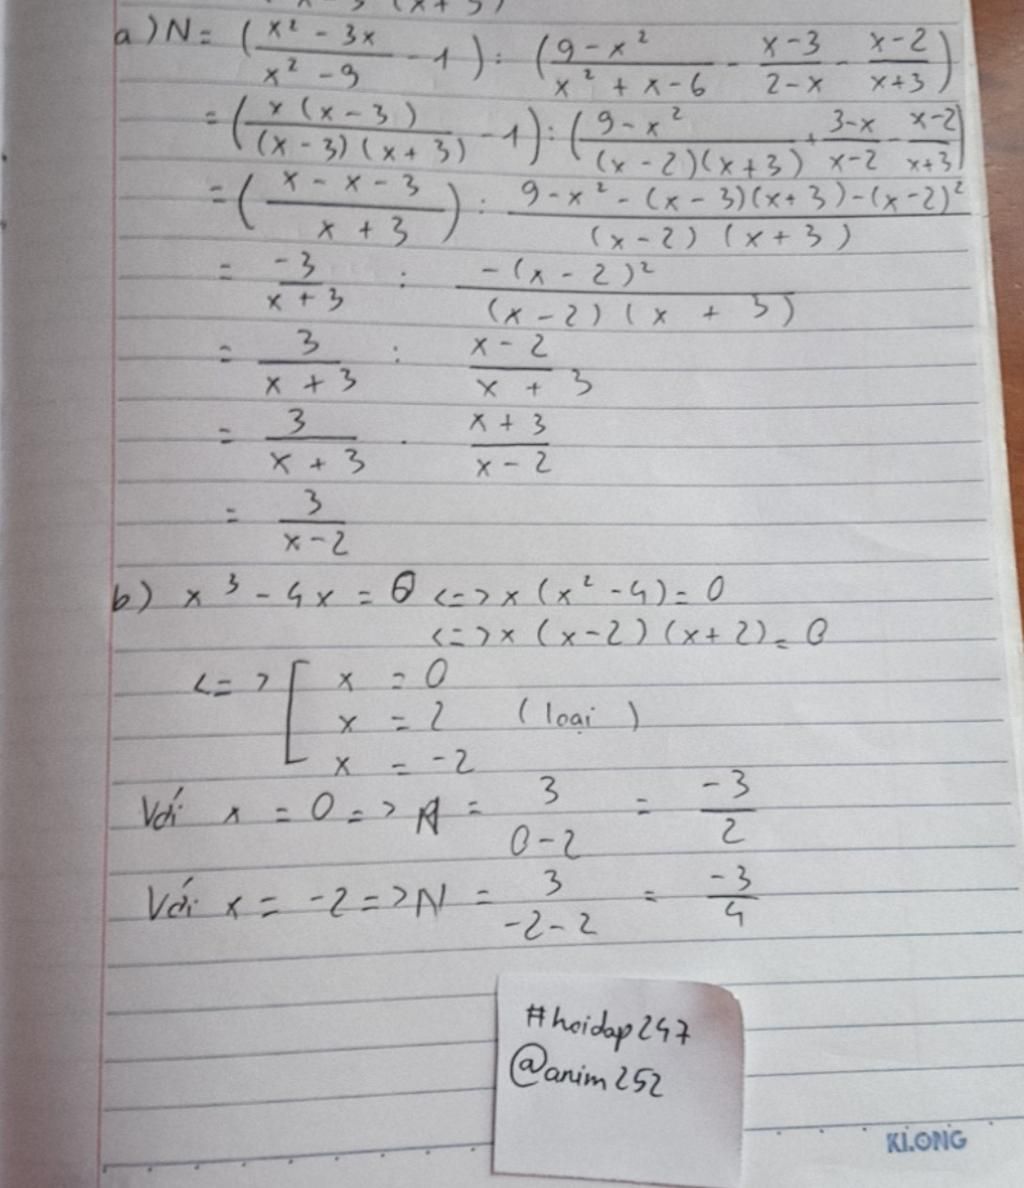 (x+3)
a) N = (x² - 3x / x² - 9 - 1) : (9 - x² / x² + x - 6 - x - 3 / 2 - x - x - 2 / x + 3)
= (x(x - 3) / (x - 3)(x + 3) - 1) : (9 - x² / (x - 2)(x + 3) + 3 - x / x - 2 - x - 2 / x + 3)
= (x - x - 3 / x + 3) : 9 - x² - (x - 3)(x + 3) - (x - 2)² / (x - 2)(x + 3)
= -3 / x + 3 : -(x - 2)² / (x - 2)(x + 3)
= 3 / x + 3 : x - 2 / x + 3
= 3 / x + 3 . x + 3 / x - 2
= 3 / x - 2
b) x³ - 4x = 0 <=> x(x² - 4) = 0
<=> x(x - 2)(x + 2) = 0
<=> [ x = 0
x = 2 (loại)
x = -2
Với x = 0 => N = 3 / 0 - 2 = -3 / 2
Với x = -2 => N = 3 / -2 - 2 = -3 / 4
#hoidap247
@anim252
KLONG